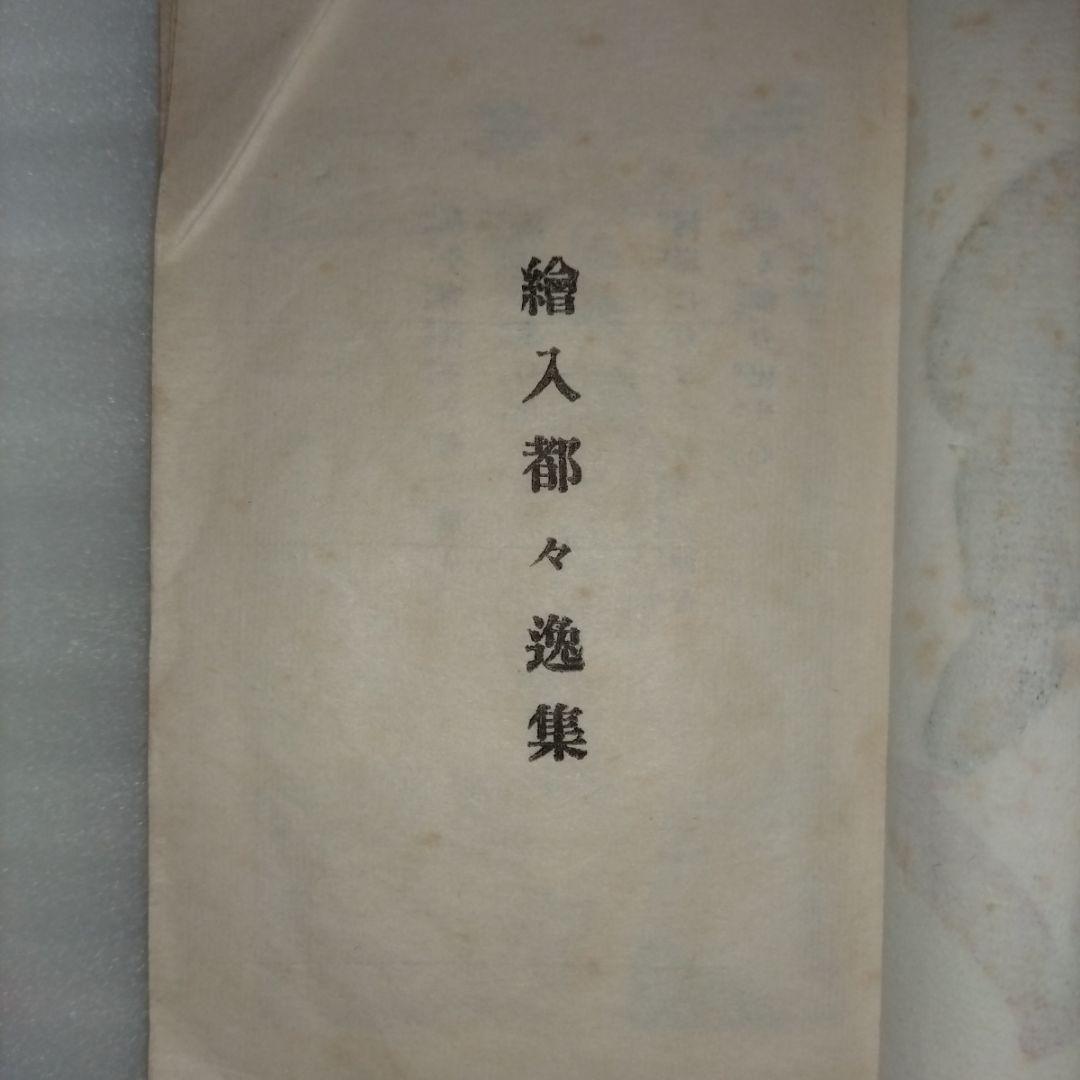 繪入都々逸集